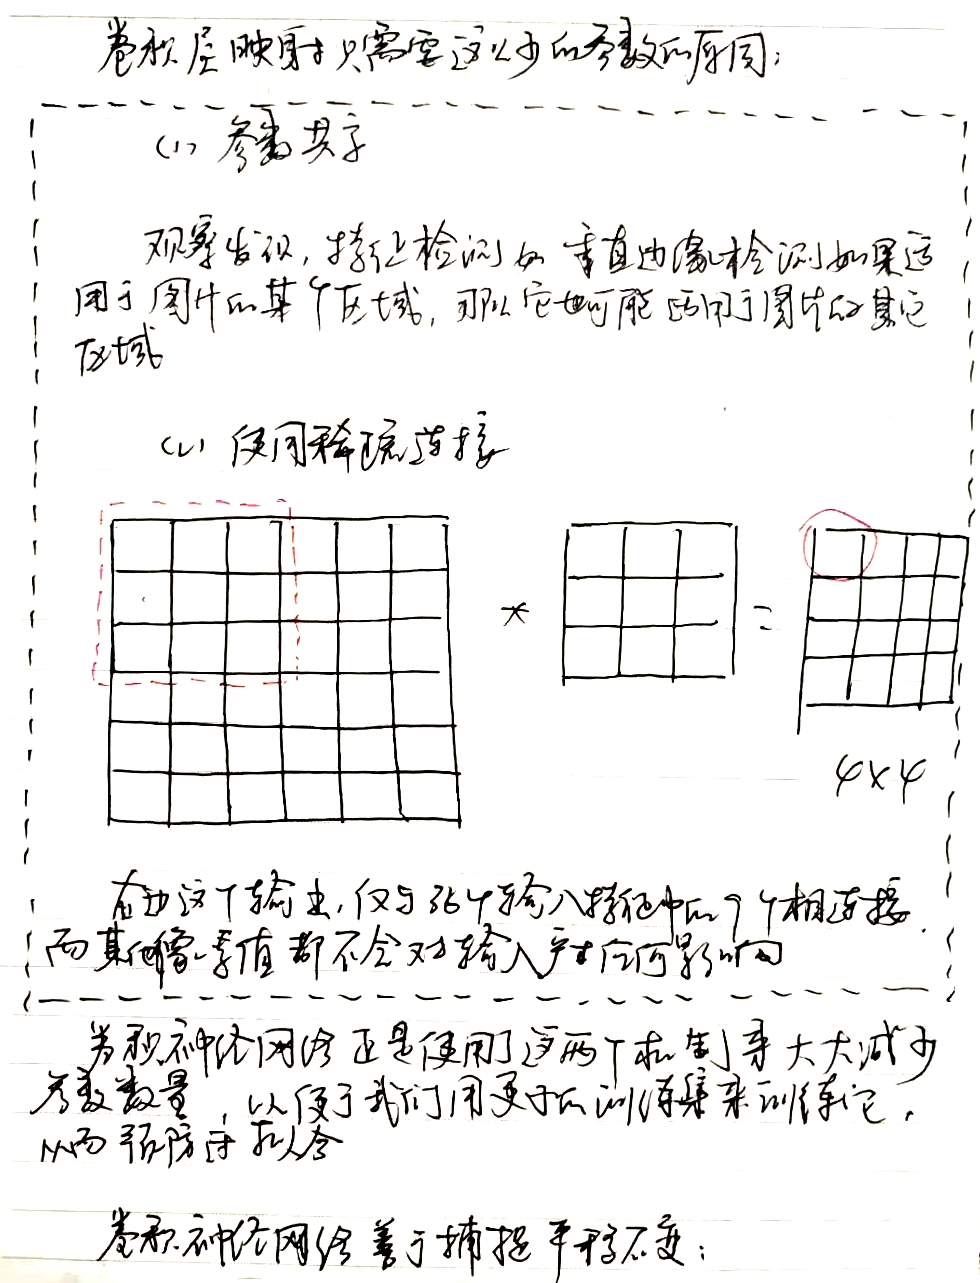 卷积层映射只需要这么少的参数的原因：
(1) 参数共享
观察发现，特征检测如垂直边缘检测如果适
用于图片的某个区域，那么它也可能适用于图片的其它
区域
(2) 使用稀疏连接
* =
4×4
右边这个输出，仅与36个输入特征中的9个相连接，
而其他像素值都不会对输入产生任何影响
卷积神经网络正是使用了这两个机制来大大减少
参数数量，以便于我们用更小的训练集来训练它，
从而预防过拟合
卷积神经网络善于捕捉平移不变：